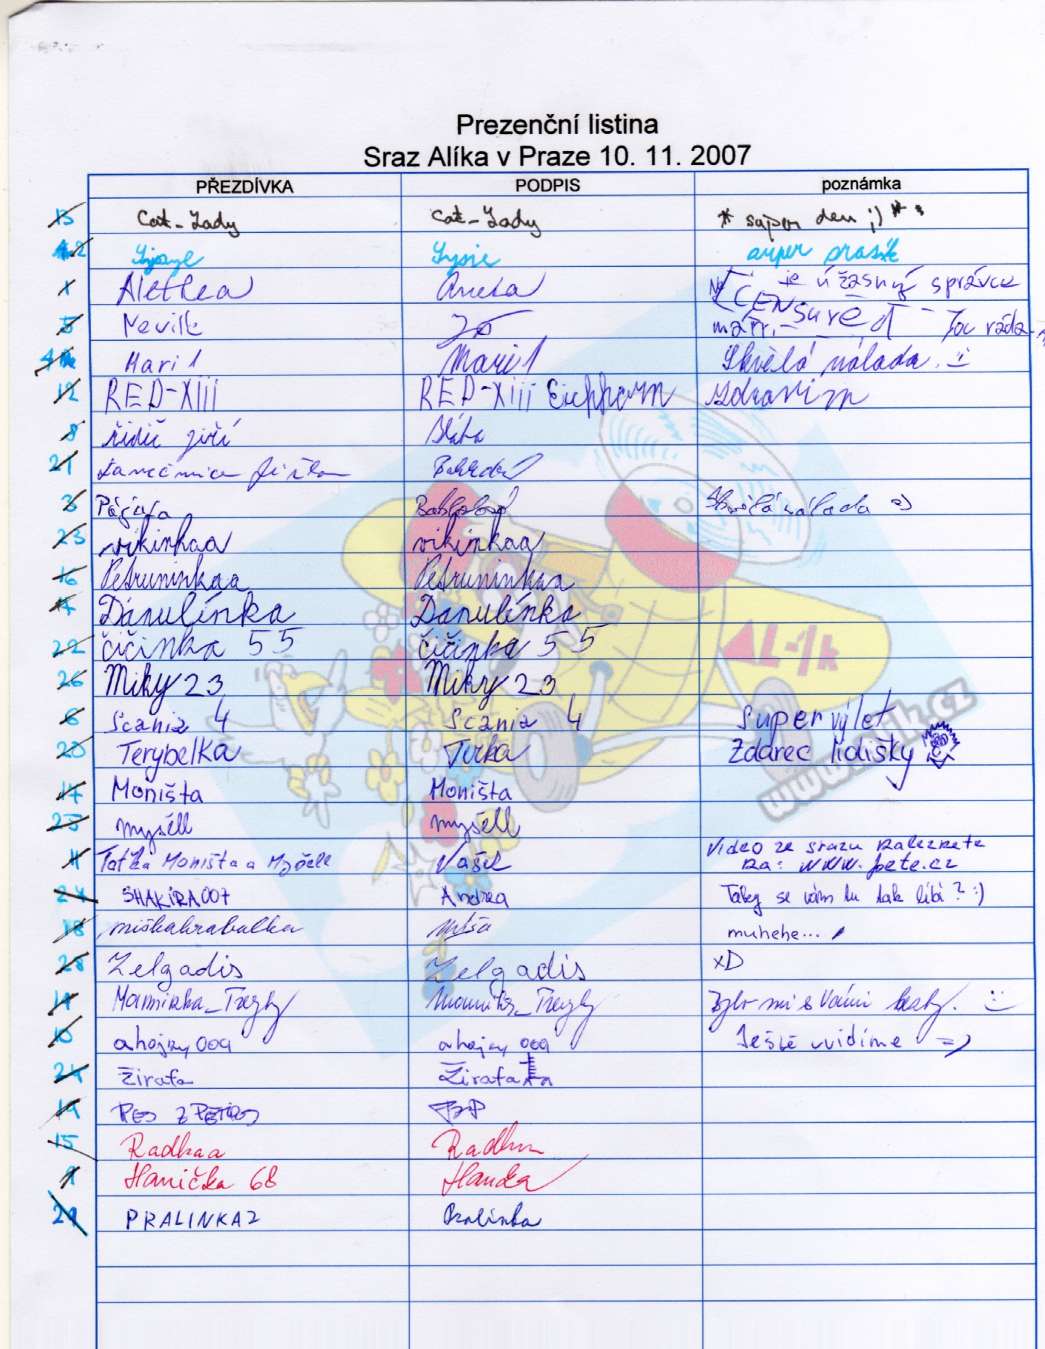 Prezenční listina
Sraz Alíka v Praze 10. 11. 2007
PŘEZDÍVKA PODPIS poznámka
13 Cat-Lady Cat-Lady * super den ;) **
super prasák
1 Alethea Aneta je úžasný správce
5 Nevilk CENSURED
Mari1 Mari1 Skvělá nálada. :-)
12 RED-XIII RED-XIII Eichhorn zdravím
8 řidič jiří Bláha
21 tanečnice Jiřího
3 Pájuja Skvělá nálada =)
23 vikinkaa vikinkaa
16 Petruninkaa Petruninkaa
Danulínka Danulínka
22 čičinka 55 čičinka 55
26 Miky 23 Miky 23
6 Scania 4 Scania 4 super výlet
20 Terybelka Terka Zdarec lidisky
L-1/k
www. ik.cz
17 Moništa Moništa
25 myšell myšell
11 Taťka Moništa a Myšell Vašek Video ze srazu naleznete
na: www.pete.cz
24 SHAKIRA007 Andrea Taky se vám tu tak líbí? :)
18 miškahrabalka Míša muhehe...
28 Zelgadis Zelgadis xD
Maminka_Tragly Maminka_Tragly Bylo mi s Vámi hezky. :-)
10 ahojky009 ahojky 009 Ještě uvidíme =)
Žirafa Žirafa
19 PES Z PETIROS PZP
15 Radkaa Radka
Hanička 68 Handa
PRALINKA2 Pralinka